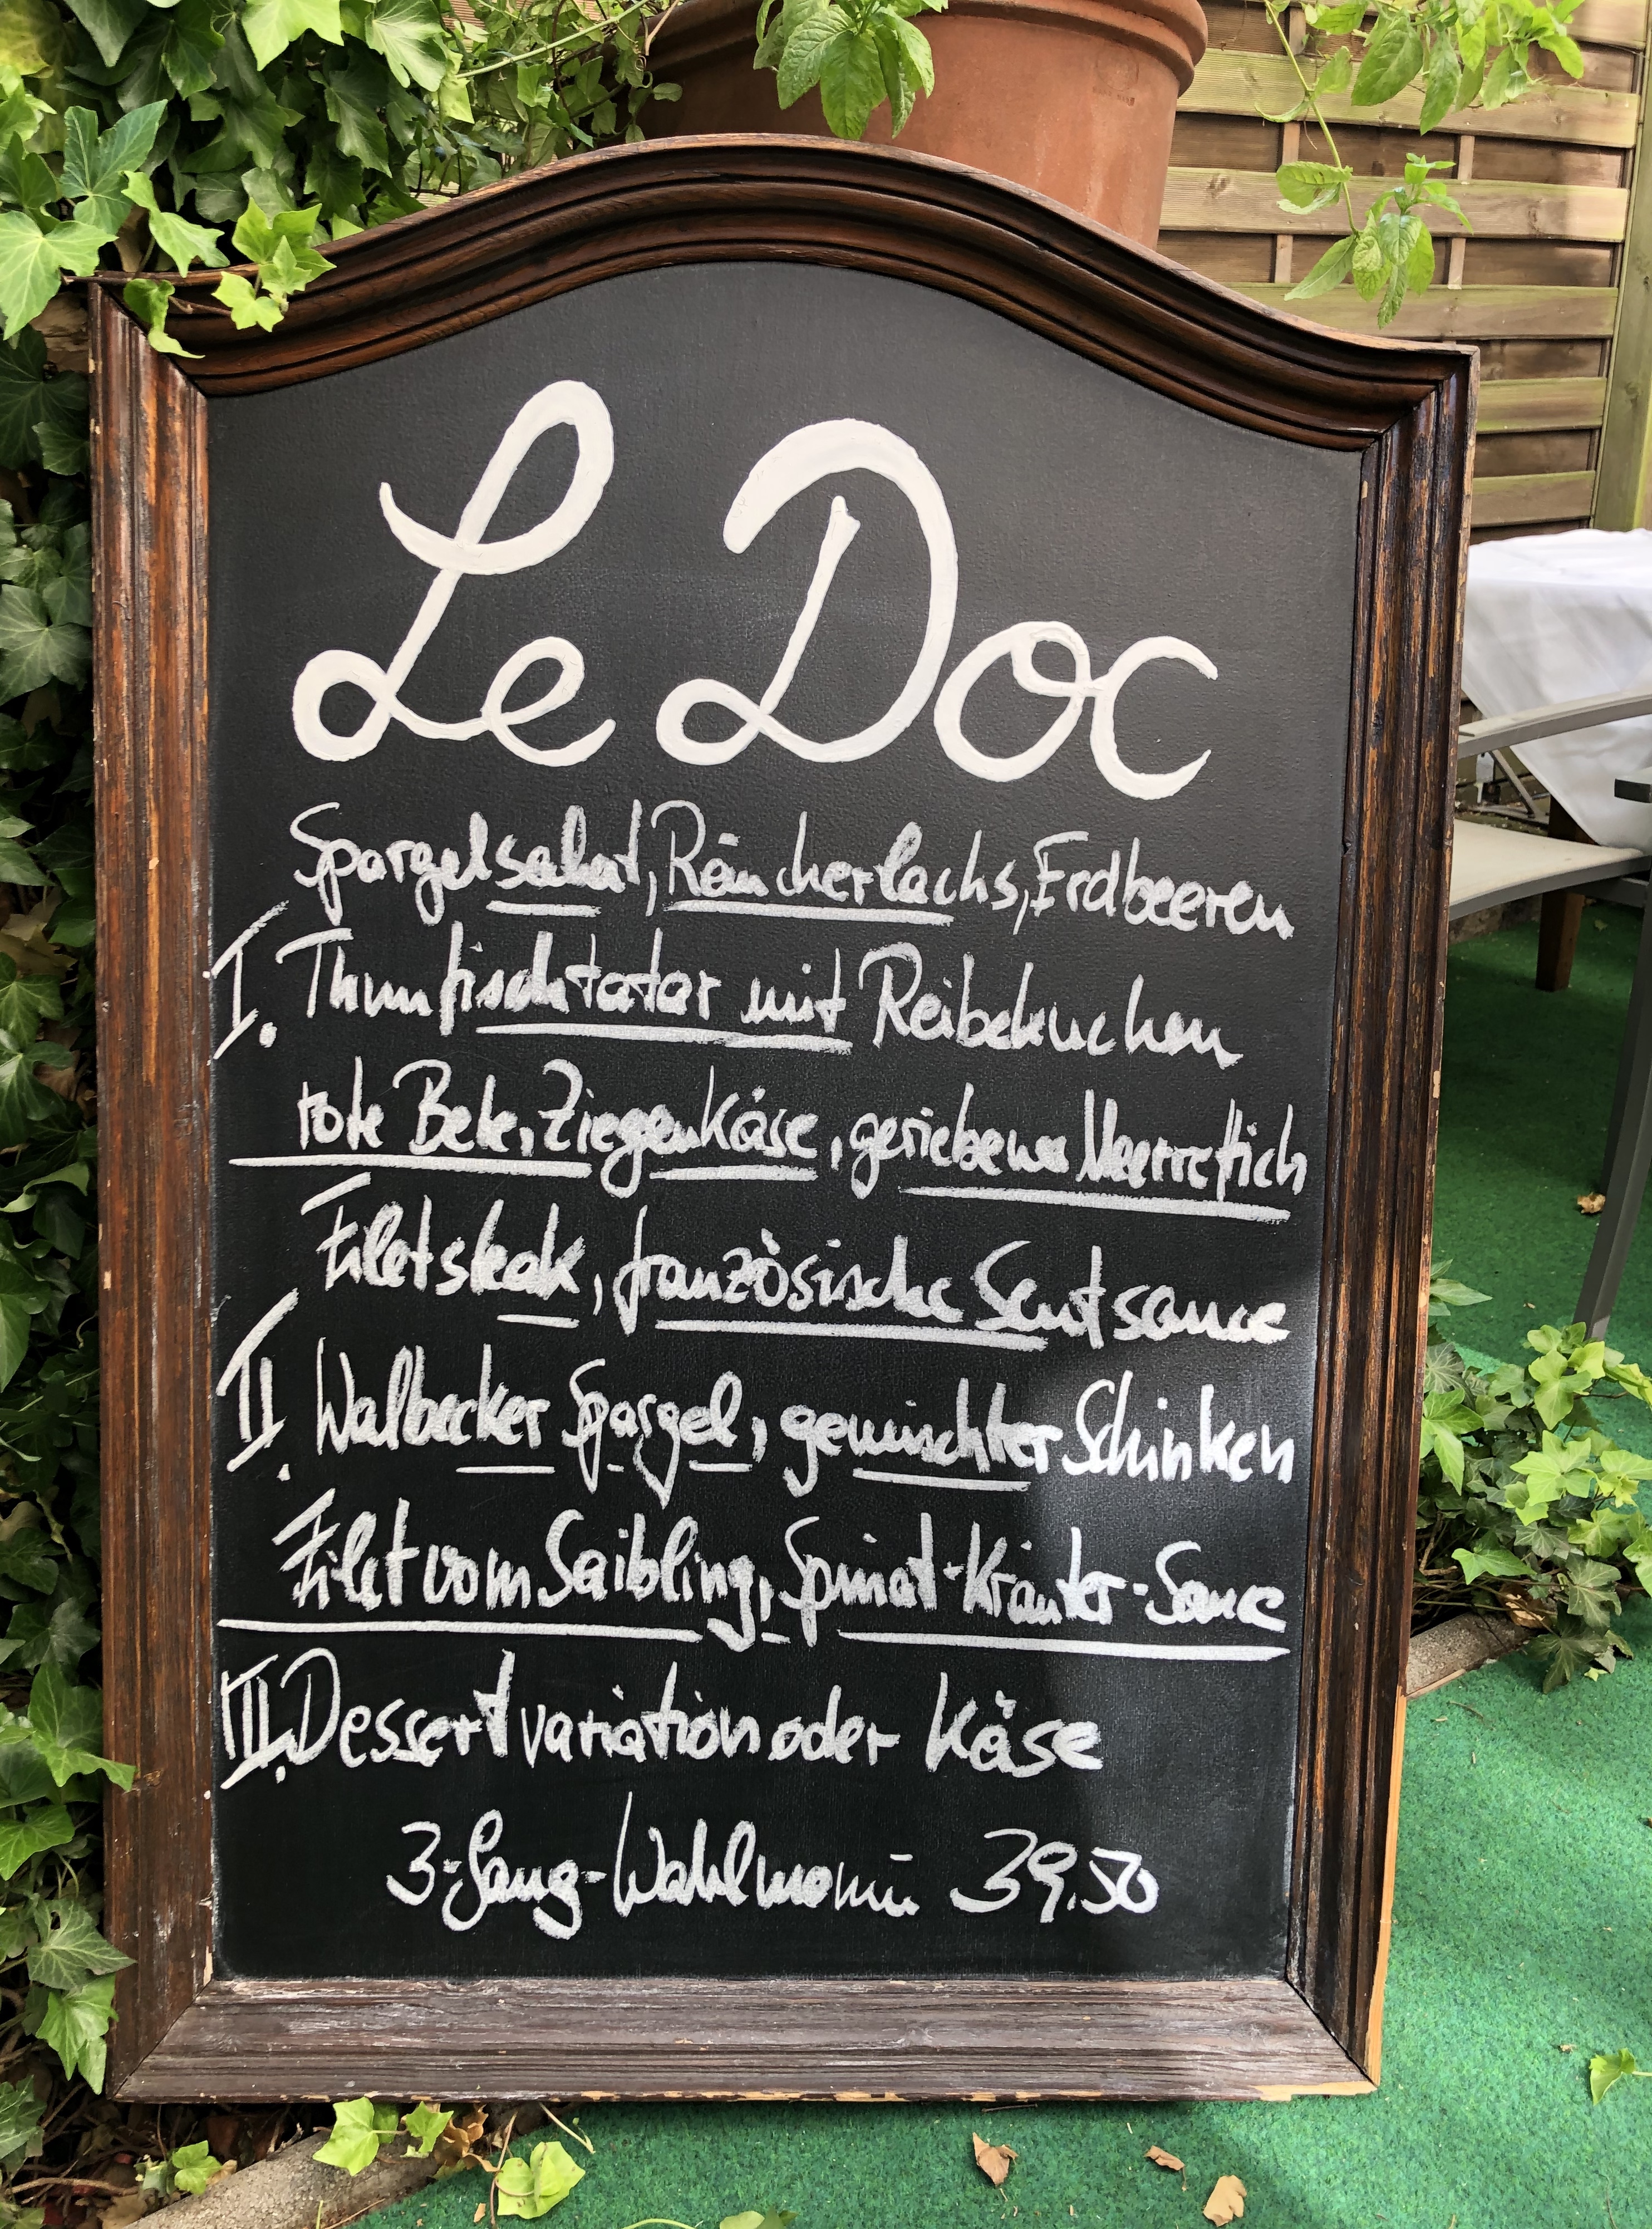 Le Doc
Spargelsalat, Räucherlachs, Erdbeeren
I. Thunfischtatar mit Reibekuchen
rote Bete, Ziegenkäse, geriebener Meerrettich
Filetsteak, französische Senfsauce
II. Walbecker Spargel, gemischter Schinken
Filet vom Saibling, Spinat-Kräuter-Sauce
III. Dessertvariation oder Käse
3-Gang-Wahlmenü 39,50